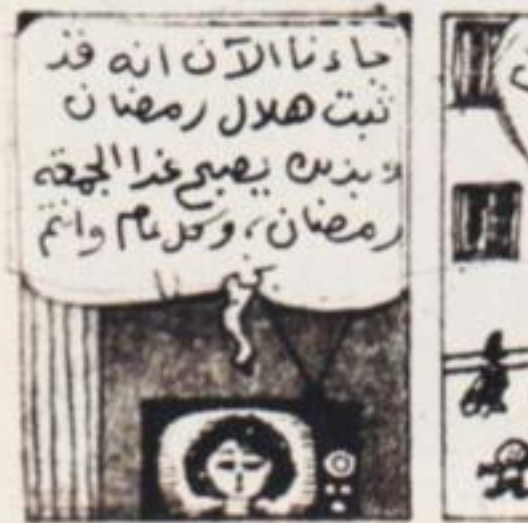 جاءنا الآن انه قد
ثبت هلال رمضان
وبذلك يصبح غدا الجمعة
رمضان، وكل عام وانتم
بخير